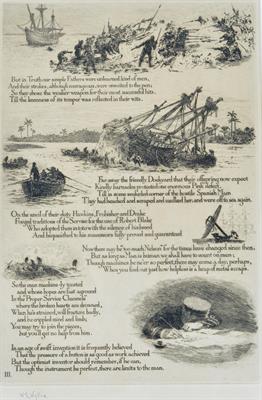 But in Truth our simple Fathers were unlearned kind of men,
And their strokes, although courageous, were unsuited to the pen;
So they chose the weaker weapon for their most successful hits,
Till the keenness of its temper was reflected in their wits.
Far away the friendly Dockyard that their offspring now expect
Kindly barnacles protected one enormous Pink defect,
Till in some secluded corner of the hostile Spanish Main
They had beached and scraped and caulked her, and were off to sea again.
On the anvil of their duty Hawkins, Frobisher and Drake
Forged traditions of the Service for the use of Robert Blake
Who adopted them in toto with the silence of his breed
And bequeathed to his successors fully proved and guaranteed
Now there may be too much Nelson for the times have changed since then,
But as long as Man is human we shall have to count on men;
Though machines be ne'er so perfect, there may come a day, perhaps,
When you find out just how helpless is a heap of metal scraps.
So the man machine-ly trusted
and whose hopes are fast aground
In the Proper Service Channels
where the broken hearts are drowned,
When he's strained, will fracture badly,
and be crippled mind and limb;
You may try to join the pieces,
but you'll get no help from him.
In an age of swift invention it is frequently believed
That the pressure of a button is as good as work achieved
But the optimist inventor should remember, if he can,
Though the instrument be perfect, there are limits to the man.
III.